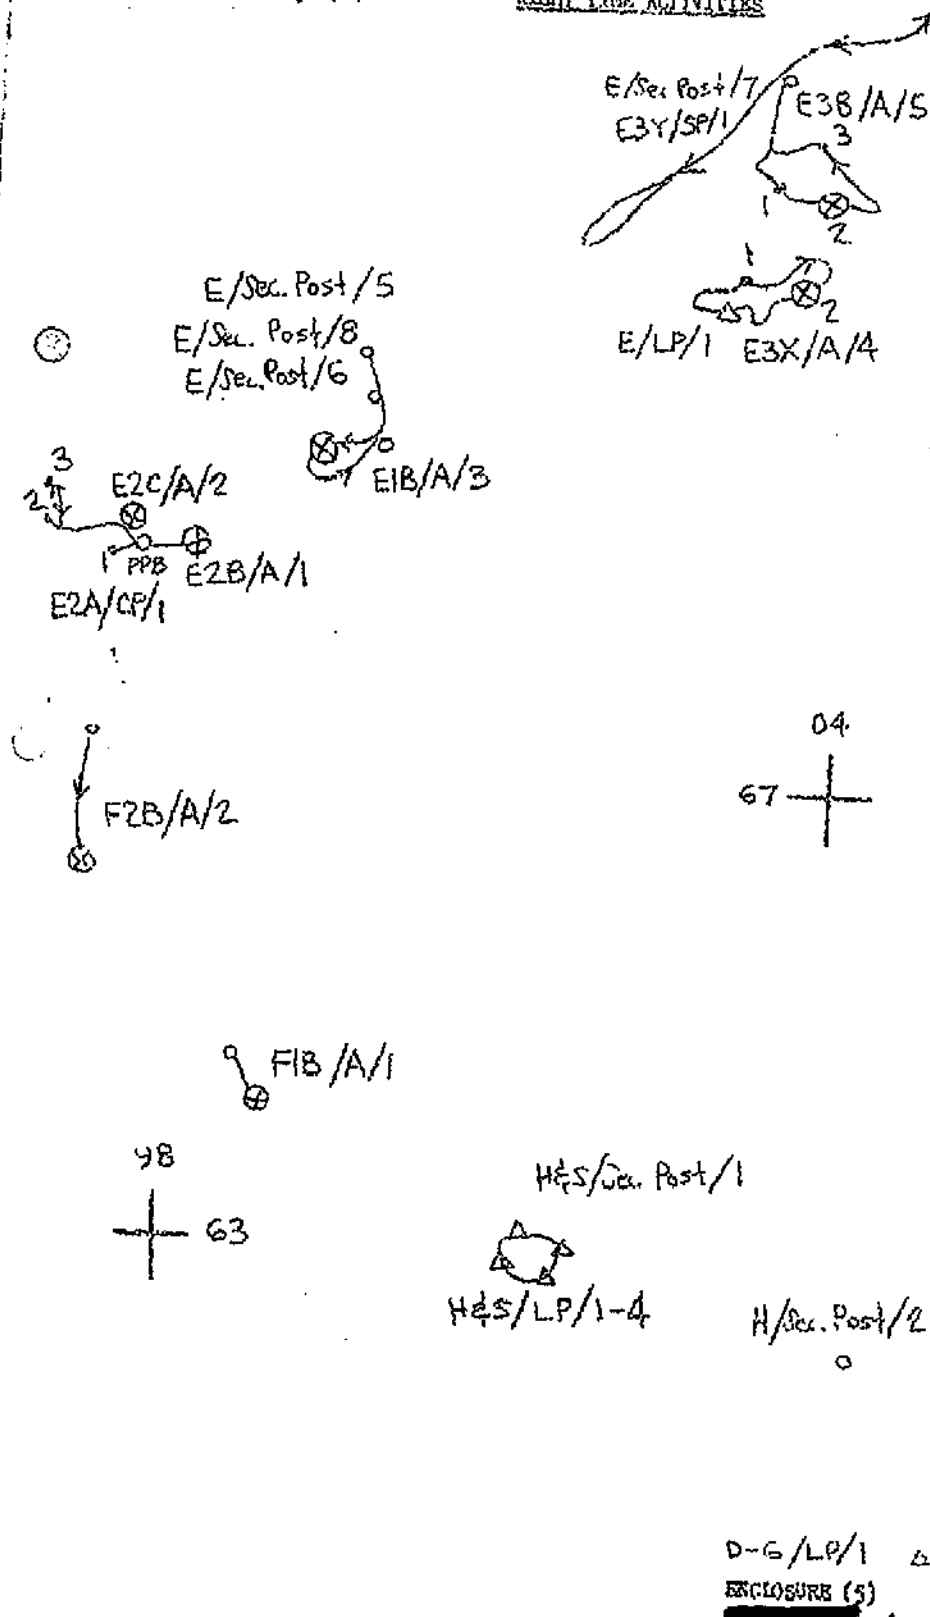 NIGHT TIME ACTIVITIES
E/Sec Post/7
E3Y/SP/1
E3B/A/5
3
1
2
E/Sec. Post/5
E/Sec. Post/8
E/Sec. Post/6
1
2
E/LP/1 E3X/A/4
E1B/A/3
3
2
E2C/A/2
1
PPB
E2B/A/1
E2A/CP/1
04
67
F2B/A/2
F1B/A/1
98
63
H&S/Sec. Post/1
H&S/LP/1-4
H/Sec. Post/2
D-G/LP/1
ENCLOSURE (5)